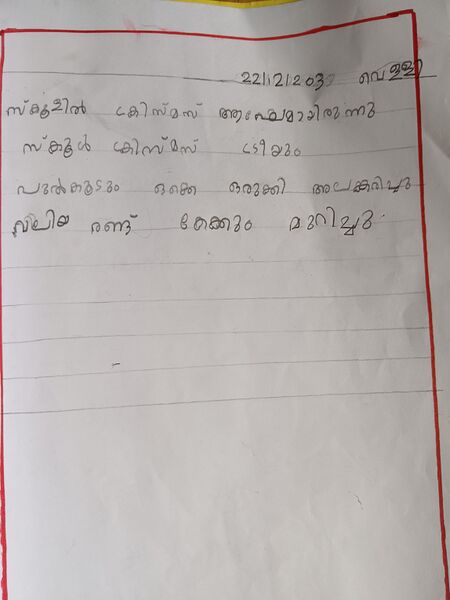 22/12/203 വെള്ളി
സ്കൂളിൽ ക്രിസ്മസ് ആഘോഷമായിരുന്നു
സ്കൂൾ ക്രിസ്മസ് ട്രീയും
പുൽകൂടും ഒക്കെ ഒരുക്കി അലങ്കരിച്ചു
വലിയ രണ്ട് കേക്കും മുറിച്ചു.